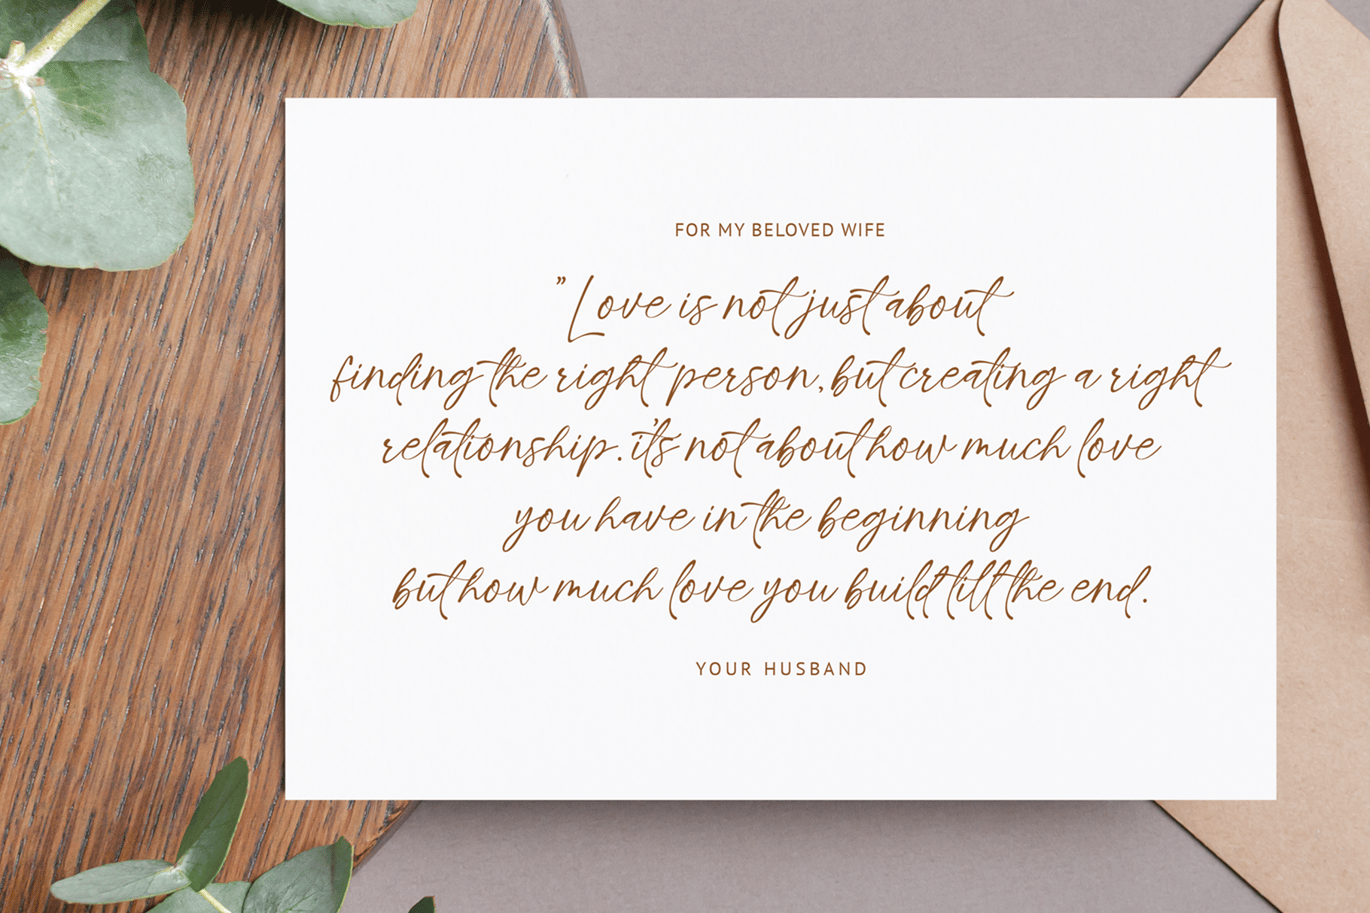 FOR MY BELOVED WIFE
"Love is not just about
finding the right person, but creating a right
relationship. it's not about how much love
you have in the beginning
but how much love you build till the end.
YOUR HUSBAND